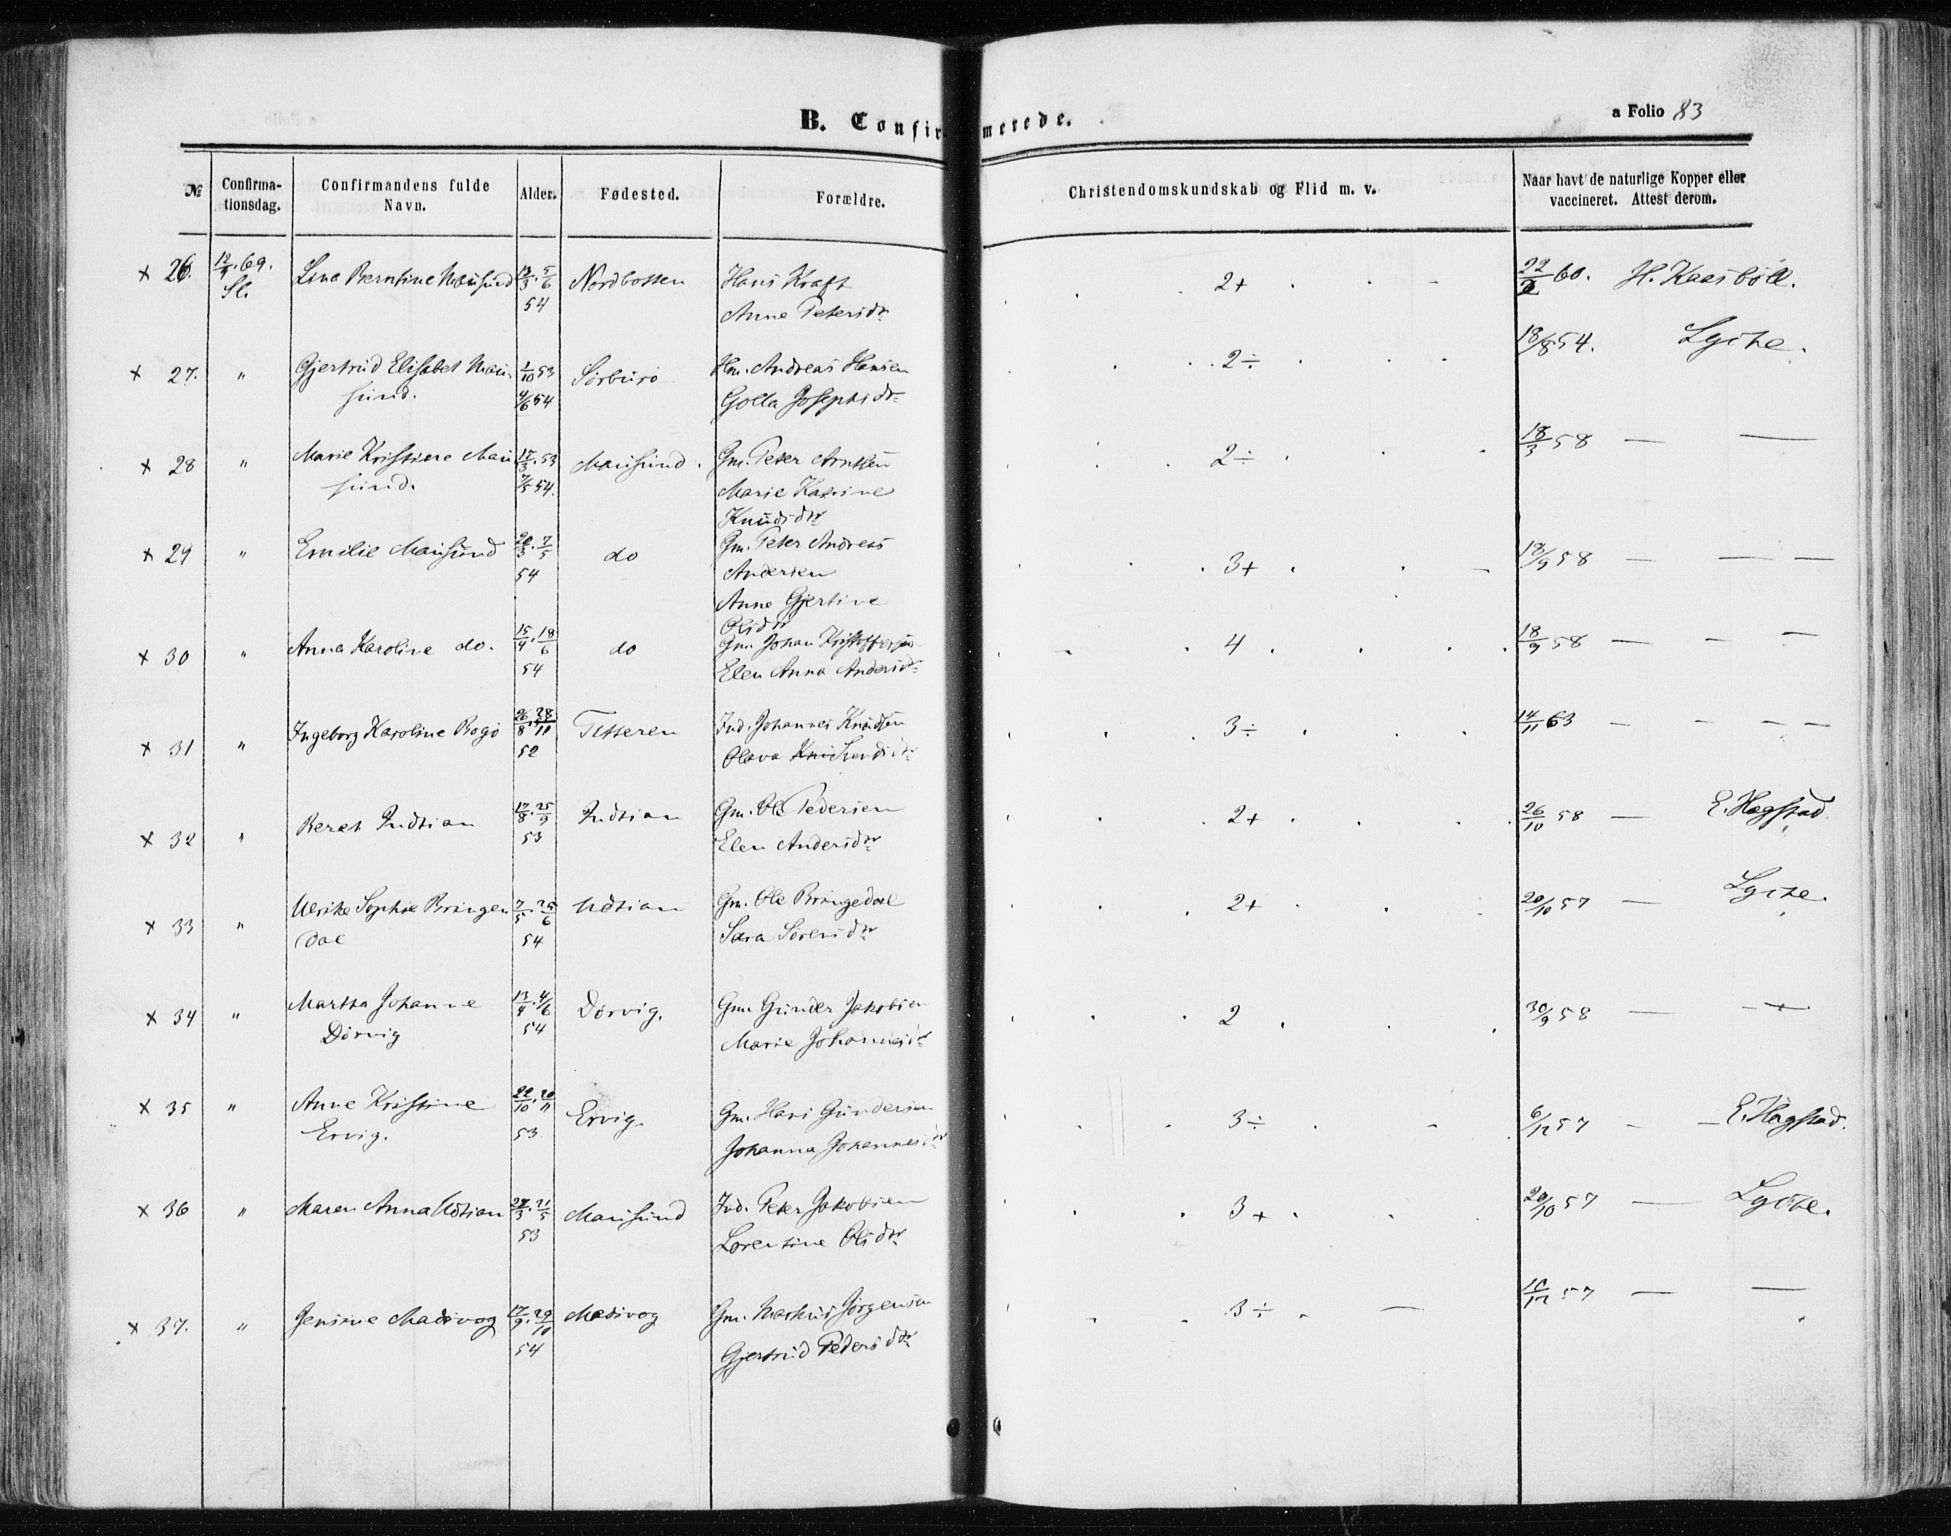 B. Confirmerede.
a Folio 83
№
Confirma-
tionsdag.
Confirmandens fulde
Navn.
Alder.
Fødested.
Forældre.
Christendomskundskab og Flid m. v.
Naar havt de naturlige Kopper eller
vaccineret. Attest derom.
× 26. 12/9.69. Sl. Lina Berntine Mausund 13/3.5/6 54 Nordbotten Hans Kraft 2+ 22/2 60. H. Kaasbøll.
Anne Petersdr
× 27. " Gjertrud Elisabet Mau- 1/10 53 Sørburø Hm. Andreas Hansen 2÷ 18/8 54. Lyche.
sund. 4/6 54 Golla Josephsdr
× 28 " Marie Kristine Mau 17/3.53 Mausund. Gm. Peter Arntsen 2÷ 18/3 58 — —
sund. 7/5 54. Marie Katrine
Knudsdr
× 29 " Emilie Mausund 20/3.7/5 54 do Gm. Peter Andreas 3+ 18/9 58 — — —
Andersen
Anne Gjertine
Olsdr
× 30 " Anna Karoline do. 15/4.18/6 54 do Gm. Johan Kristoffersen 4 18/9 58 — — —
Elen Anna Andersdr
× 31 " Ingeborg Karoline Bogø 26/8.28/10 52 Titteren Ind. Johannes Knudsen 3÷ 14/11 63 — — — —
Olava
× 32 " Beret Indtian 17/8.25/9 53 Indtian Gm. Ole Pedersen 2+ 26/10 58 — E. Hagstad.
Elen Andersdr
× 33 " Ulrike Sophie Bringen 7/5.25/6 Udtian Gm. Ole Bringedal 2+ 20/10 57 — Lyche.
dal 54 Sara Sørensdr
× 34 " Martha Johanne 13/4.4/6 Dørvig. Gm. Gunder Jakobsen 2 30/9 58 — —
Dørvig 54 Marie Johannesdr
× 35 " Anne Kristine 22/10.20/11 Ervig. Gm. Hans Gundersen 3÷ 6/12 57 — — E. Hagstad.
Ervig. 53 Johanna Johannesdr
× 36 " Maren Anna Udtian 27/3.21/5 53 Mausund Ind. Peter Jakobsen 3+ 20/10 57 — Lyche.
Lorentine Olsdr
× 37. " Jensine Madsvog 17/9.29/10 54 Madsvog Gm. Markus Jørgensen 3÷ — 57 — —
Gjertrud Pedersdr